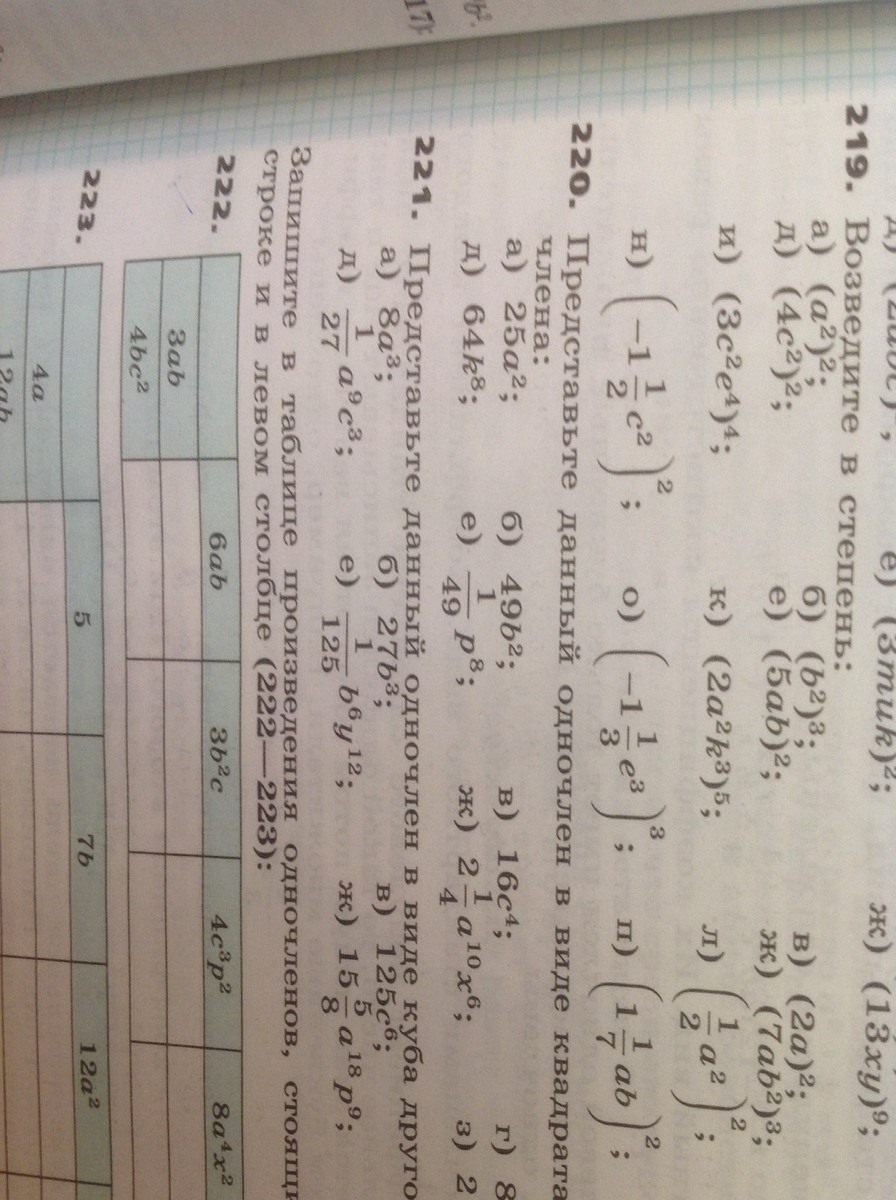 ж) (13xy)⁹;
219. Возведите в степень:
а) (a²)²; б) (b²)³; в) (2a)²;
д) (4c²)²; е) (5ab)²; ж) (7ab²)³;
и) (3c²e⁴)⁴; к) (2a²k³)⁵; л) (1/2 a²)²;
н) (−1 1/2 c²)²; о) (−1 1/3 e³)³; п) (1 1/7 ab)²;
220. Представьте данный одночлен в виде квадрата
члена:
а) 25a²; б) 49b²; в) 16c⁴; г) 8
д) 64k⁸; е) 1/49 p⁸; ж) 2 1/4 a¹⁰x⁶; з) 2
221. Представьте данный одночлен в виде куба друго
а) 8a³; б) 27b³; в) 125c⁶;
д) 1/27 a⁹c³; е) 1/125 b⁶y¹²; ж) 15 5/8 a¹⁸p⁹;
Запишите в таблице произведения одночленов, стоящи
строке и в левом столбце (222—223):
222. 6ab 3b²c 4c³p² 8a⁴x²
3ab
4bc²
223. 5 7b 12a²
4a
12ab